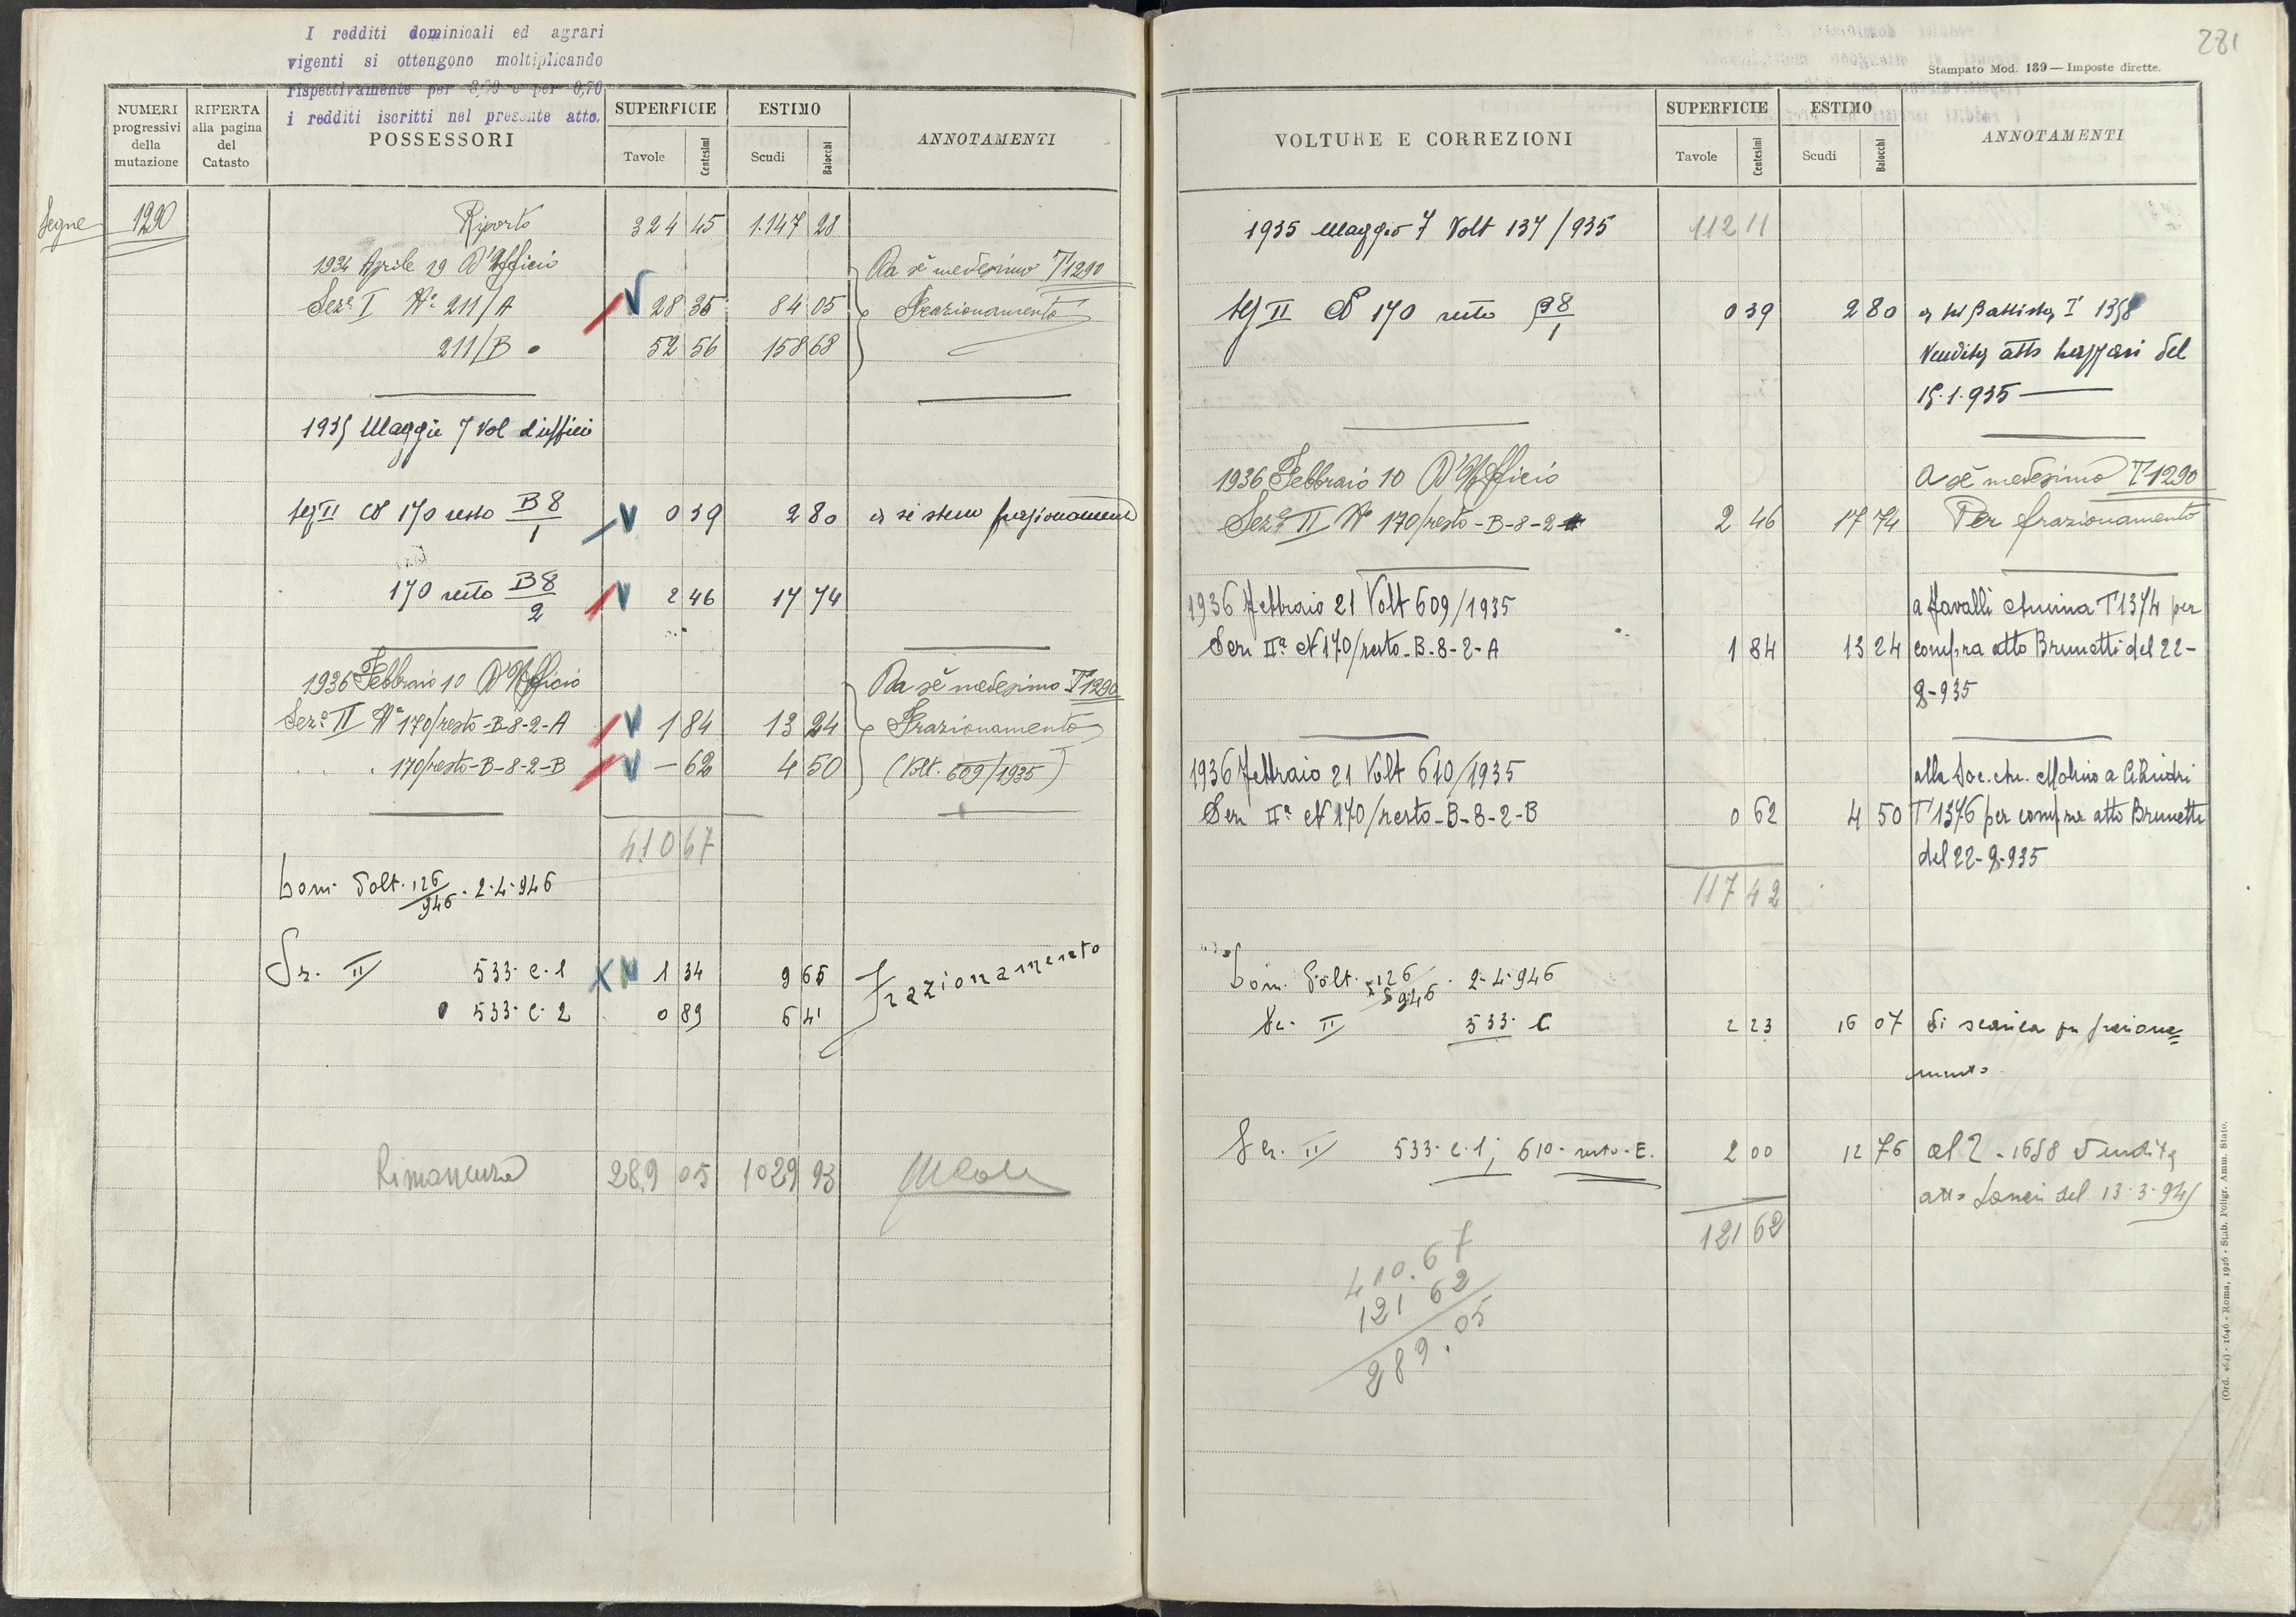 I redditi dominicali ed agrari
vigenti si ottengono moltiplicando
rispettivamente per e per 0,70
i redditi iscritti nel presente atto.
NUMERI progressivi della mutazione
RIFERTA alla pagina del Catasto
POSSESSORI
SUPERFICIE
ESTIMO
ANNOTAMENTI
Tavole Centesimi Scudi Baiocchi
Segue 1290 Riporto 324 45 1.147 28
1934 Aprile 19 D'Ufficio Da sè medesimo T 1290
Sez.e I N.o 211/A 28 35 84 05 Frazionamento
211/B 52 56 158 68
1935 Maggio 7 Vol d'ufficio
Sez II N 170 resto B8/1 0 39 2 80 a se stesso frazionamento
170 resto B8/2 2 46 17 74
1936 Febbraio 10 D'Ufficio Da sè medesimo T 1290
Sez.e II N.o 170/resto-B-8-2-A 1 84 13 24 Frazionamento
170/resto-B-8-2-B - 62 4 50 (Volt. 609/1935)
410 67
Com. Volt. 126/946 . 2.4.946
Sez. II 533. C. 1 1 34 9 65 Frazionamento
533. C. 2 0 89 6 41
Rimanenza 289 05 1029 93
281
Stampato Mod. 139 — Imposte dirette.
VOLTURE E CORREZIONI
SUPERFICIE
ESTIMO
ANNOTAMENTI
Tavole Centesimi Scudi Baiocchi
1935 Maggio 7 Volt 137/935 112 11
Sez II N 170 resto B8/1 0 39 2 80 a Battista T 1358
Vendita atto del
15.1.935
1936 Febbraio 10 D'Ufficio A sè medesimo T 1290
Sez.e II N.o 170/resto-B-8-2 2 46 17 74 Per frazionamento
1936 Febbraio 21 Volt 609/1935 a Favalli T 1374 per
Sez IIa N 170/resto-B-8-2-A 1 84 13 24 compra atto Brunetti del 22-
8-935
1936 Febbraio 21 Volt 610/1935 alla Soc. An. Molino a Cilindri
Sez IIa N 170/resto-B-8-2-B 0 62 4 50 T 1376 per compra atto Brunetti
del 22-8-935
117 42
Com. Volt. 126/946 . 2.4.946
Sez. II 533. C 2 23 16 07 Si scarica per fraziona=
mento
Sez. II 533. C. 1; 610. resto. E. 2 00 12 76 al T. 1658 Vendita
atto del 13.3.945
121 62
410.67
121 62
289.05
(Ord. 464) - 1646 - Roma, 1926 - Stab. Poligr. Amm. Stato.